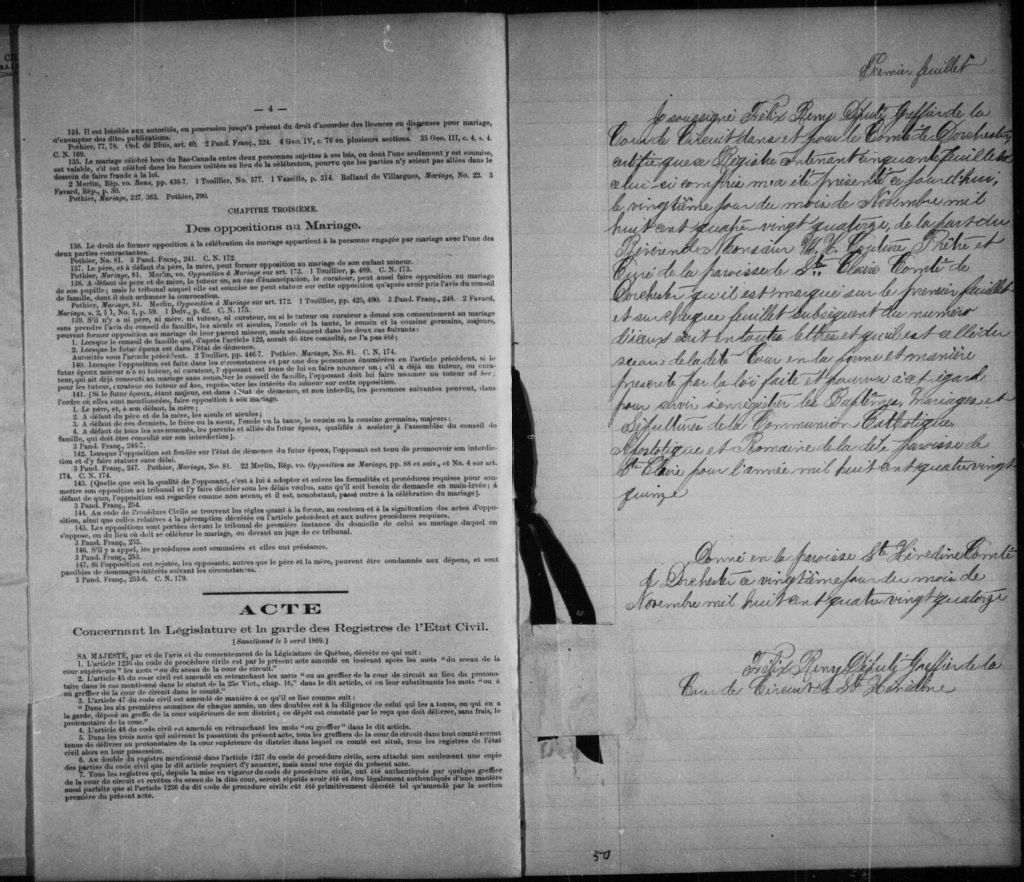 — 4 —
134. Il est loisible aux autorités, en possession jusqu'à présent du droit d'accorder des licences ou dispenses pour mariage,
d'exempter des dites publications.
Pothier, 77, 78. Ord. de Blois, art. 40. 2 Pand. Franç., 324. 4 Geo. IV, c. 76 en plusieurs sections. 25 Geo. III, c. 4, s. 4.
C. N. 169.
135. Le mariage célébré hors du Bas-Canada entre deux personnes sujettes à ses lois, ou dont l'une seulement y est soumise,
est valable, s'il est célébré dans les formes usitées au lieu de la célébration, pourvu que les parties n'y soient pas allées dans le
dessein de faire fraude à la loi.
2 Merlin, Rép. vo. Bans, pp. 436-7. 1 Touillier, No. 577. 1 Vazeille, p. 314. Rolland de Villargues, Mariage, No. 22. 3
Favard, Rép., p. 50.
Pothier, Mariage, 327, 363. Pothier, 390.
CHAPITRE TROISIÈME.
Des oppositions au Mariage.
136. Le droit de former opposition à la célébration du mariage appartient à la personne engagée par mariage avec l'une des
deux parties contractantes.
Pothier, No. 81. 3 Pand. Franç., 241. C. N. 172.
137. Le père, et à défaut du père, la mère, peut former opposition au mariage de son enfant mineur.
Pothier, Mariage, 81. Merlin, vo. Opposition à Mariage sur art. 173. 1 Touillier, p. 489. C. N. 173.
138. A défaut de père et de mère, le tuteur, ou, au cas d'émancipation, le curateur, peut aussi faire opposition au mariage
de son pupille; mais le tribunal auquel elle est soumise ne peut statuer sur cette opposition qu'après avoir pris l'avis du conseil
de famille, dont il doit ordonner la convocation.
Pothier, Mariage, 81. Merlin, Opposition à Mariage sur art. 172. 1 Touillier, pp. 420, 490. 3 Pand. Franç., 248. 2 Favard,
Mariage, s. 2, § 1, No. 3, p. 59. 1 Delv., p. 62. C. N. 175.
139. S'il n'y a ni père, ni mère, ni tuteur, ni curateur, ou si le tuteur ou curateur a donné son consentement au mariage
sans prendre l'avis du conseil de famille, les aïeuls et aïeules, l'oncle et la tante, le cousin et la cousine germains, majeurs,
peuvent former opposition au mariage de leur parent mineur, mais seulement dans les deux cas suivants:
1. Lorsque le conseil de famille qui, d'après l'article 122, aurait dû être consulté, ne l'a pas été;
2. Lorsque le futur époux est dans l'état de démence.
Autorités sous l'article précédent. 2 Touillier, pp. 446-7. Pothier, Mariage, No. 81. C. N. 174.
140. Lorsque l'opposition est faite dans les circonstances et par une des personnes énumérées en l'article précédent, si le
futur époux mineur n'a ni tuteur, ni curateur, l'opposant est tenu de lui en faire nommer un; s'il a déjà un tuteur, ou cura-
teur, qui ait déjà consenti au mariage sans consulter le conseil de famille, l'opposant doit lui faire nommer un tuteur ad hoc;
pour les tuteur, curateur ou tuteur ad hoc, représenter les intérêts du mineur sur cette opposition.
141. [Si le futur époux, étant majeur, est dans l'état de démence, et non interdit, les personnes suivantes peuvent, dans
l'ordre où elles sont mentionnées, faire opposition à son mariage:
1. Le père, et, à son défaut, la mère;
2. A défaut du père et de la mère, les aïeuls et aïeules;
3. A défaut de ces derniers, le frère ou la sœur, l'oncle ou la tante, le cousin ou la cousine germains, majeurs;
4. A défaut de tous les sus-nommés, les parents et alliés du futur époux, qualifiés à assister à l'assemblée du conseil de
famille, qui doit être consulté sur son interdiction].
3 Pand. Franç., 246-7.
142. Lorsque l'opposition est fondée sur l'état de démence du futur époux, l'opposant est tenu de promouvoir son interdic-
tion et d'y faire statuer sans délai.
3 Pand. Franç., 247. Pothier, Mariage, No. 81. 22 Merlin, Rép. vo. Opposition au Mariage, pp. 88 et suiv., et No. 4 sur art.
174. C. N. 174.
143. [Quelle que soit la qualité de l'opposant, c'est à lui à adopter et suivre les formalités et procédures requises pour sou-
mettre son opposition au tribunal et l'y faire décider sous les délais voulus, sans qu'il soit besoin de demande en main-levée; à
défaut de quoi, l'opposition est regardée comme non avenu, et il est, nonobstant, passé outre à la célébration du mariage].
3 Pand. Franç., 254.
144. Au code de Procédure Civile se trouvent les règles quant à la forme, au contenu et à la signification des actes d'oppo-
sition, ainsi que celles relatives à la péremption décrétée en l'article précédent et aux autres procédures requises.
145. Les oppositions sont portées devant le tribunal de première instance du domicile de celui au mariage duquel on
s'oppose, ou du lieu où doit se célébrer le mariage, ou devant un juge de ce tribunal.
3 Pand. Franç., 253.
146. S'il y a appel, les procédures sont sommaires et elles ont préséance.
3 Pand. Franç., 253.
147. Si l'opposition est rejetée, les opposants, autres que le père et la mère, peuvent être condamnés aux dépens, et sont
passibles de dommages-intérêts suivant les circonstances.
3 Pand. Franç., 255-6. C. N. 179.
ACTE
Concernant la Législature et la garde des Registres de l'Etat Civil.
[Sanctionné le 5 avril 1869.]
SA MAJESTÉ, par et de l'avis et du consentement de la Législature de Québec, décrète ce qui suit:
1. L'article 1236 du code de procédure civile est par le présent acte amendé en insérant après les mots "du sceau de la
cour supérieure" les mots "ou du sceau de la cour de circuit."
2. L'article 45 du code civil est amendé en retranchant les mots "ou au greffier de la cour de circuit au lieu du protono-
taire dans le cas mentionné dans le statut de la 25e Vict., chap. 16," dans le dit article, et en leur substituant les mots "ou à
un greffier de la cour de circuit dans le comté."
3. L'article 47 du code civil est amendé de manière à ce qu'il se lise comme suit:
"Dans les six premières semaines de chaque année, un des doubles est à la diligence de celui qui les a tenus, ou qui en a
la garde, déposé au greffe de la cour supérieure de son district; ce dépôt est constaté par le reçu que doit délivrer, sans frais, le
protonotaire de la cour."
4. L'article 48 du code civil est amendé en retranchant les mots "ou greffier" dans le dit article.
5. Dans les trois mois qui suivront la passation du présent acte, tous les greffiers de la cour de circuit dans tout comté seront
tenus de délivrer au protonotaire de la cour supérieure du district dans lequel ce comté est situé, tous les registres de l'état
civil alors en leur possession.
6. Au double du registre mentionné dans l'article 1237 du code de procédure civile, sera attaché non seulement une copie
des parties du code civil que le dit article requiert d'y annexer, mais aussi une copie du présent acte.
7. Tous les registres qui, depuis la mise en vigueur du code de procédure civile, ont été authentiqués par quelque greffier
de la cour de circuit et revêtus du sceau de la dite cour, seront réputés avoir été et être légalement authentiqués d'une manière
aussi parfaite que si l'article 1236 du dit code de procédure civile eût été primitivement décrété tel qu'amendé par la section
première du présent acte.
Dernier feuillet
Je soussigné Félix Remy Député Greffier de la
Cour de Circuit dans et pour le Comté de Dorchester
certifie que ce Registre contenant cinquante feuillets
celui-ci compris m'a été présenté ce jourd'hui,
le vingtième jour du mois de Novembre mil
huit cent quatre-vingt quatorze, de la part du
Révérend Monsieur Couture Prêtre et
Curé de la paroisse de Ste Claire Comté de
Dorchester qu'il est marqué sur le premier feuillet
et sur chaque feuillet subséquent du numéro
d'iceux écrit en toutes lettres et qu'il est cellé du
sceau de la dite Cour en la forme et manière
prescrite par la loi faite et pourvue à cet égard
pour servir à enrégistrer les Baptêmes, Mariages et
Sépultures de la Communion Catholique
Apostolique et Romaine de la dite paroisse de
Ste Claire pour l'année mil huit cent quatre vingt
quinze
Donné en la paroisse Ste Hénédine Comté
de Dorchester ce vingtième jour du mois de
Novembre mil huit cent quatre vingt quatorze
Félix Remy Député Greffier de la
Cour de Circuit à Ste Hénédine
50